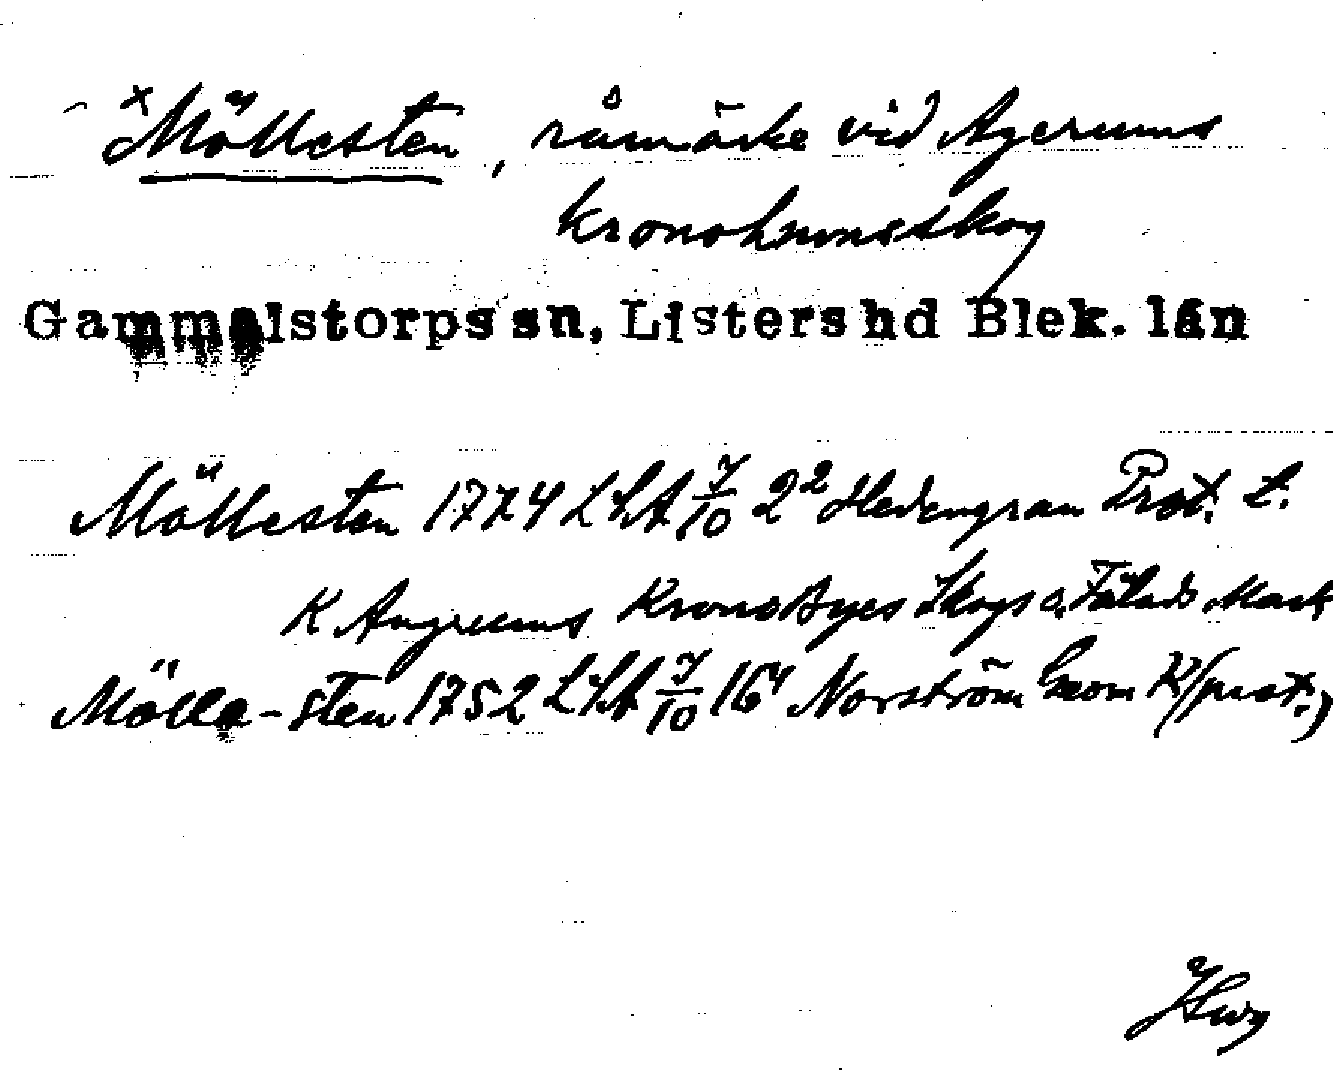 x Möllesten, råmärke vid Agerums
kronohumeskog
Gammalstorps sn, Listers hd Blek. län
Möllesten 1774 LSA 7/10 2² Hedengran Prot. t.
K Angerums Krono Byes Skogs o. Fälads Mark
Mölle-sten 1752 LSA 7/10 16⁴ Norström Geom K/(prot.)